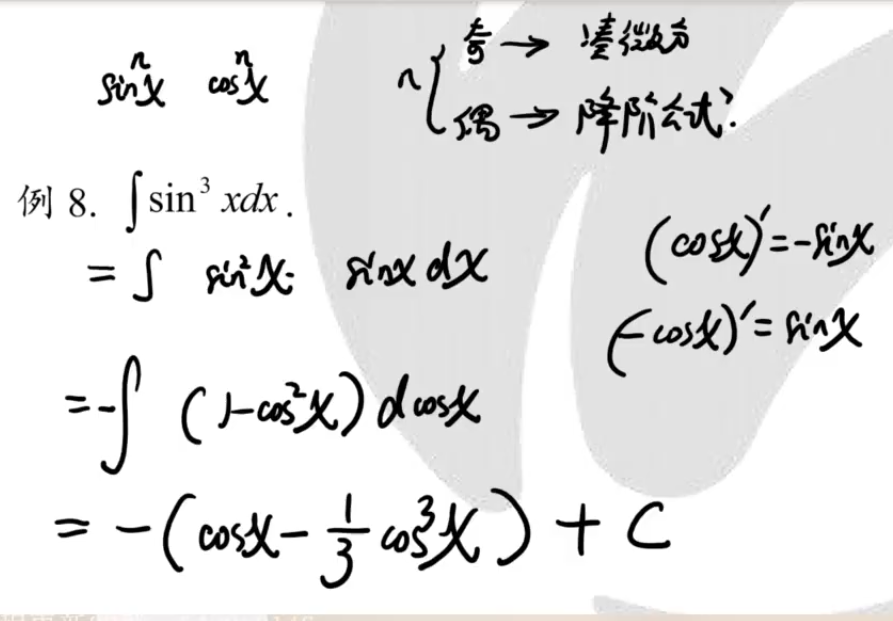 sinⁿx cosⁿx
n { 奇 → 凑微分
偶 → 降阶公式.
例 8. ∫ sin³ xdx .
= ∫ sin²x · sinx dx
(cosx)′ = -sinx
(-cosx)′ = sinx
= -∫ (1-cos²x) d cosx
= -(cosx - 1/3 cos³x) + C